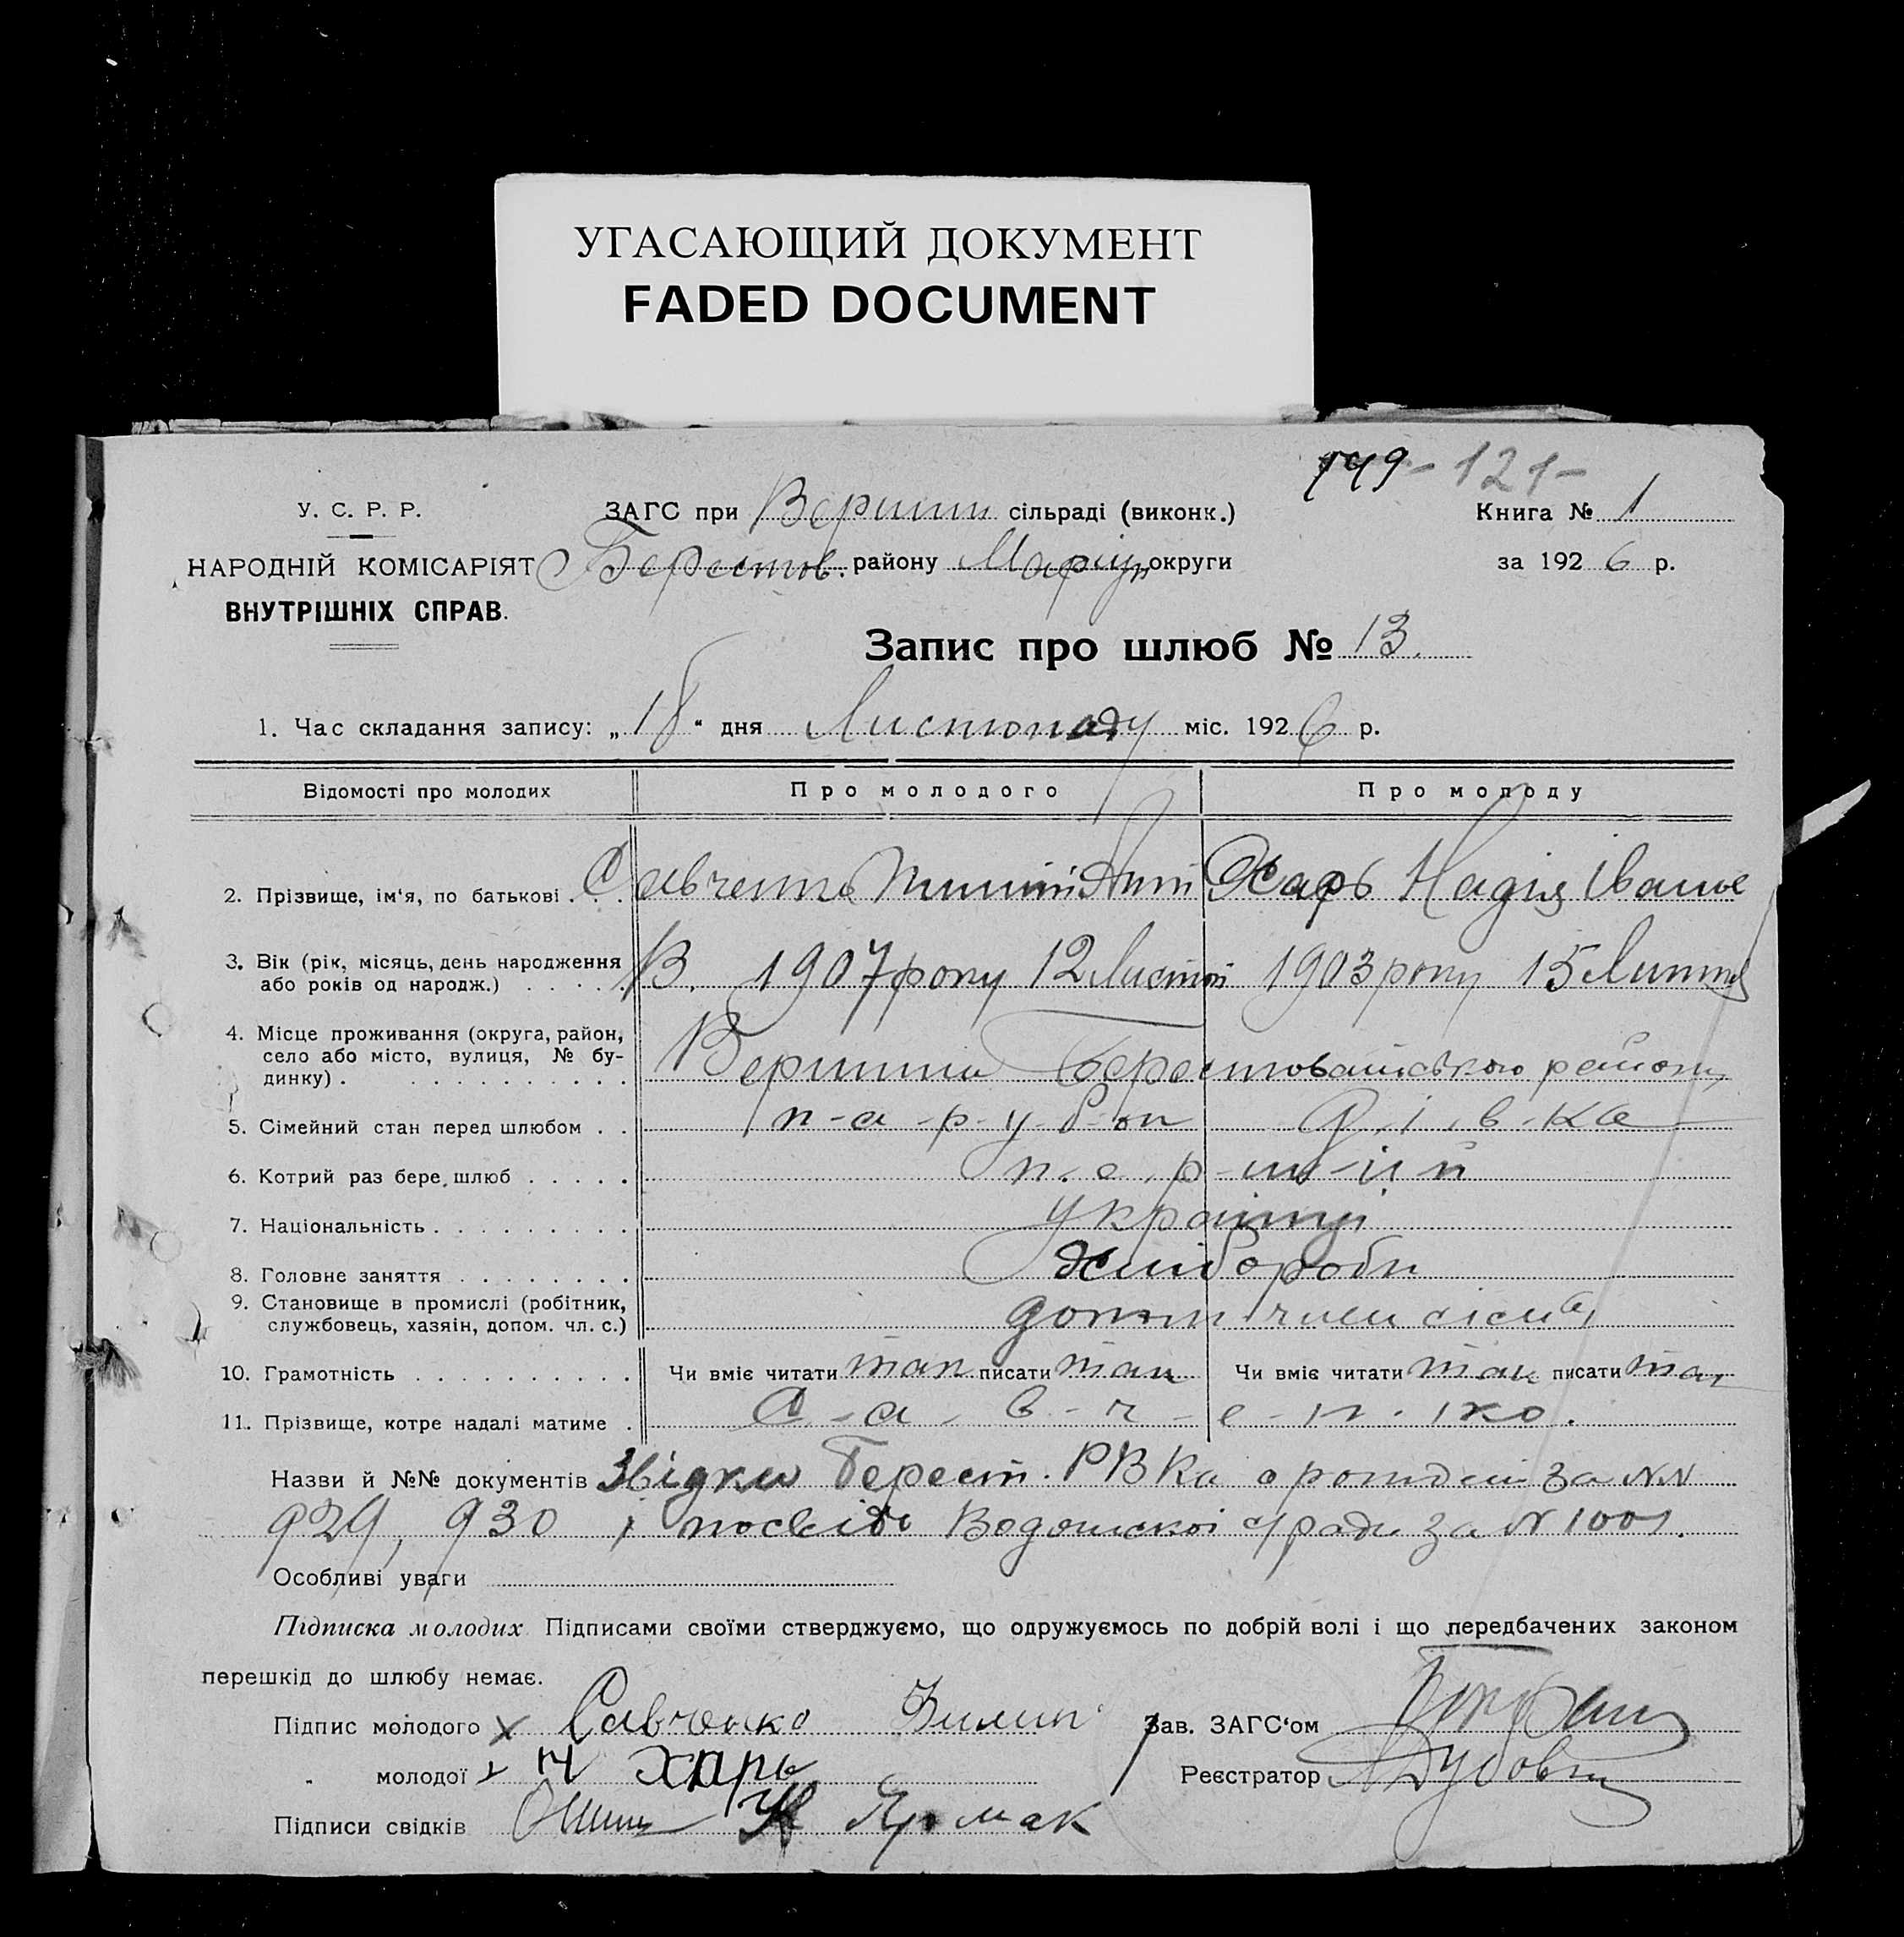 УГАСАЮЩИЙ ДОКУМЕНТ
FADED DOCUMENT
149 - 121 -
У. С. Р. Р.
НАРОДНІЙ КОМІСАРІЯТ
ВНУТРІШНІХ СПРАВ.
ЗАГС при Вершин сільраді (виконк.)
Берестов. району Маріуп округи
Книга № 1
за 1926 р.
Запис про шлюб № 13.
1. Час складання запису: „18" дня Листопаду міс. 1926 р.
Відомості про молодих Про молодого Про молоду
2. Прізвище, ім'я, по батькові . . . Савченко Харь Надія Іванов
3. Вік (рік, місяць, день народження або років од народж.) . . . . . В. 1907 року 12 Листоп 1903 року 15 Липня
4. Місце проживання (округа, район, село або місто, вулиця, № будинку) . . . . . . . . . . Вершина Берестоваńського району
5. Сімейний стан перед шлюбом . . п-а-р-у-б-ок д.і.в-ка
6. Котрий раз бере шлюб . . . . . п.е.р-ш-ий
7. Національність . . . . . . . . . українці
8. Головне заняття . . . . . . . . Хлібороби
9. Становище в промислі (робітник, службовець, хазяїн, допом. чл. с.) допом члени сісм'ї
10. Грамотність . . . . . . . . . . Чи вміє читати так писати так Чи вміє читати так писати так
11. Прізвище, котре надалі матиме . С-а-в-ч-е-н-ко.
Назви й №№ документів Звідки Берест. РВКа о рожден за NN
929, 930 і посвідо Водянскої с/ради за N 1001.
Особливі уваги
Підписка молодих Підписами своїми стверджуємо, що одружуємось по добрій волі і що передбачених законом
перешкід до шлюбу немає.
Підпис молодого х Савченко Зав. ЗАГС'ом
„ молодої х Н Харь Реєстратор Дубов
Підписи свідків Ярмак